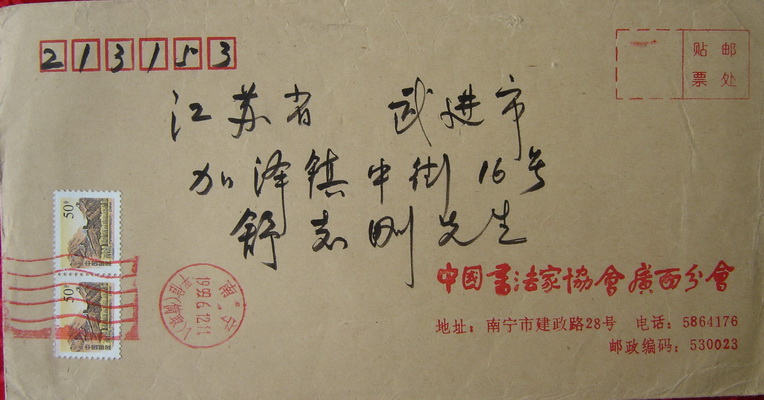 213153
贴邮
票处
江苏省 武进市
加泽镇中街16号
舒志刚先生
50分
50分
南宁
1999.6.12.11
中国书法家协会廣西分會
地址：南宁市建政路28号 电话：5864176
邮政编码：530023